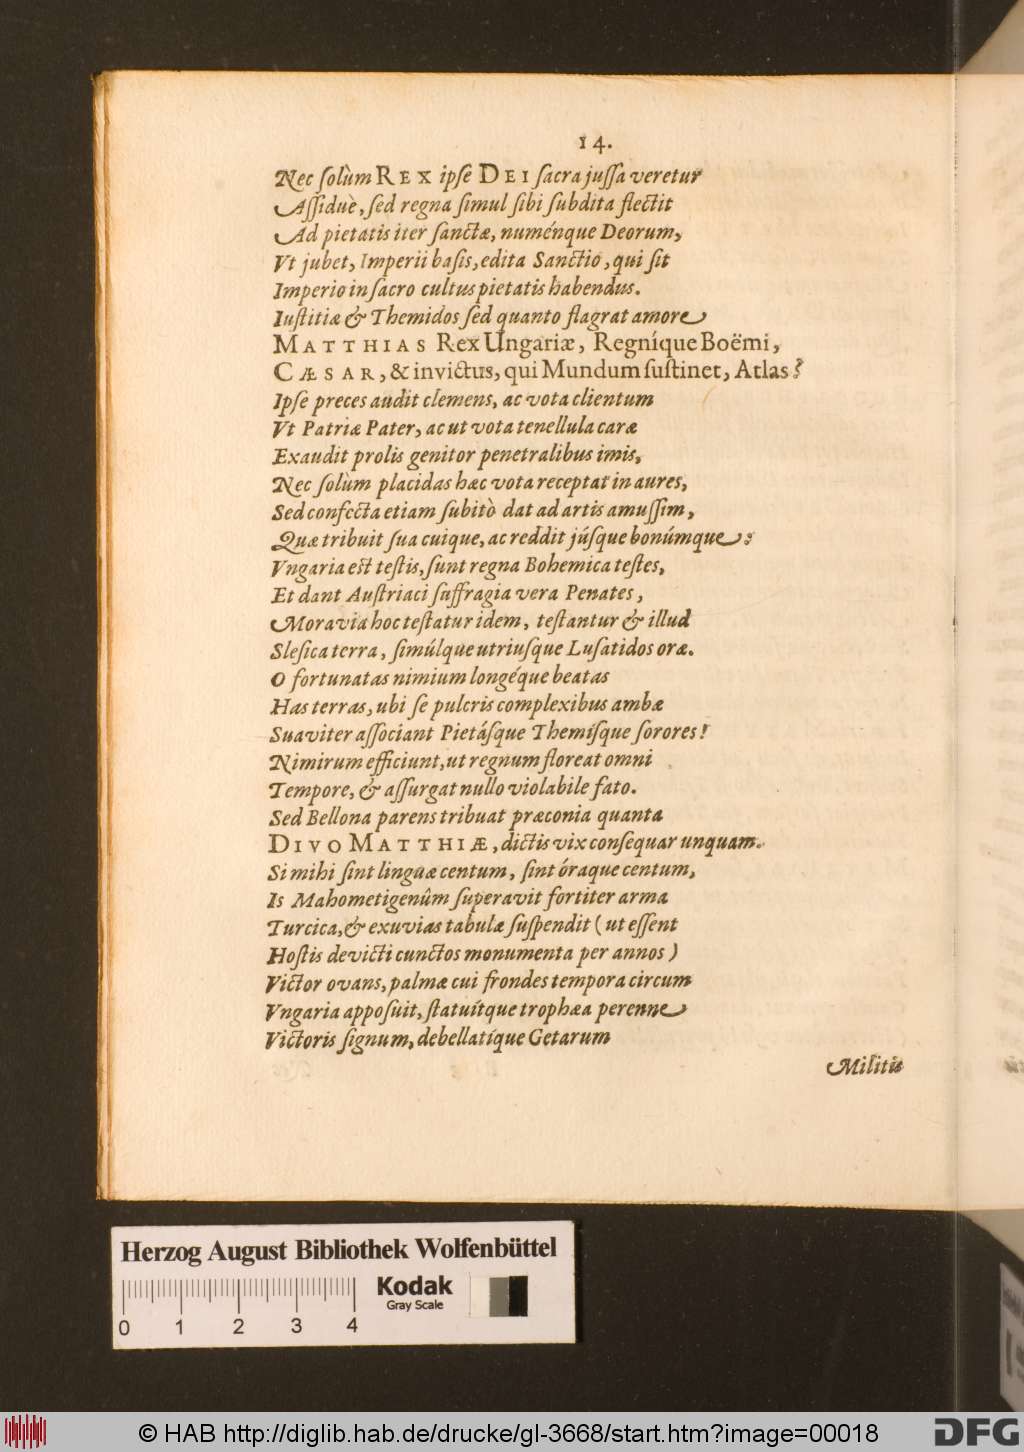 14.
Nec ſolùm REX ipſe DEI ſacra juſſa veretur
Aſſiduè, ſed regna ſimul ſibi ſubdita flectit
Ad pietatis iter ſanctæ, numénque Deorum,
Vt jubet, Imperii baſis, edita Sanctio, qui ſit
Imperio in ſacro cultus pietatis habendus.
Iuſtitiæ & Themidos ſed quanto flagrat amore
MATTHIAS Rex Ungariæ, Regníque Boëmi,
CÆSAR, & invictus, qui Mundum ſuſtinet, Atlas?
Ipſe preces audit clemens, ac vota clientum
Vt Patriæ Pater, ac ut vota tenellula caræ
Exaudit prolis genitor penetralibus imis,
Nec ſolùm placidas hæc vota receptat in aures,
Sed confecta etiam ſubitò dat ad artis amuſſim,
Quæ tribuit ſua cuique, ac reddit júſque bonúmque:
Vngaria eſt teſtis, ſunt regna Bohemica teſtes,
Et dant Auſtriaci ſuffragia vera Penates,
Moravia hoc teſtatur idem, teſtantur & illud
Sleſica terra, ſimúlque utriuſque Luſatidos oræ.
O fortunatas nimium longéque beatas
Has terras, ubi ſe pulcris complexibus ambæ
Suaviter aſſociant Pietáſque Themíſque ſorores!
Nimirum efficiunt, ut regnum floreat omni
Tempore, & aſſurgat nullo violabile fato.
Sed Bellona parens tribuat præconia quanta
DIVO MATTHIÆ, dictis vix conſequar unquam.
Si mihi ſint linguæ centum, ſint óraque centum,
Is Mahometigenûm ſuperavit fortiter arma
Turcica, & exuvias tabulæ ſuſpendit (ut eſſent
Hoſtis devicti cunctos monumenta per annos)
Victor ovans, palmæ cui frondes tempora circum
Vngaria appoſuit, ſtatuítque trophæa perenne
Victoris ſignum, debellatíque Getarum
Militis
Herzog August Bibliothek Wolfenbüttel
Kodak
Gray Scale
0 1 2 3 4
© HAB http://diglib.hab.de/drucke/gl-3668/start.htm?image=00018
DFG